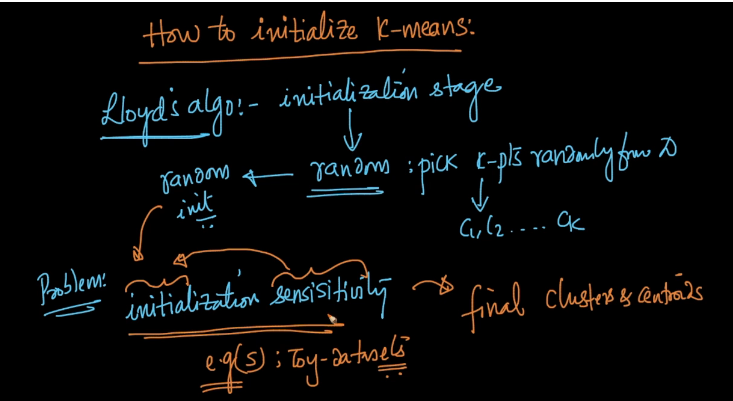 How to initialize K-means:
Lloyd's algo:- initialization stage
random init ← random : pick K-pts randomly from D
C1, C2 .... CK
Problem: initialization sensisitivity → final clusters & centroids
e.g(s) ; Toy-datasets